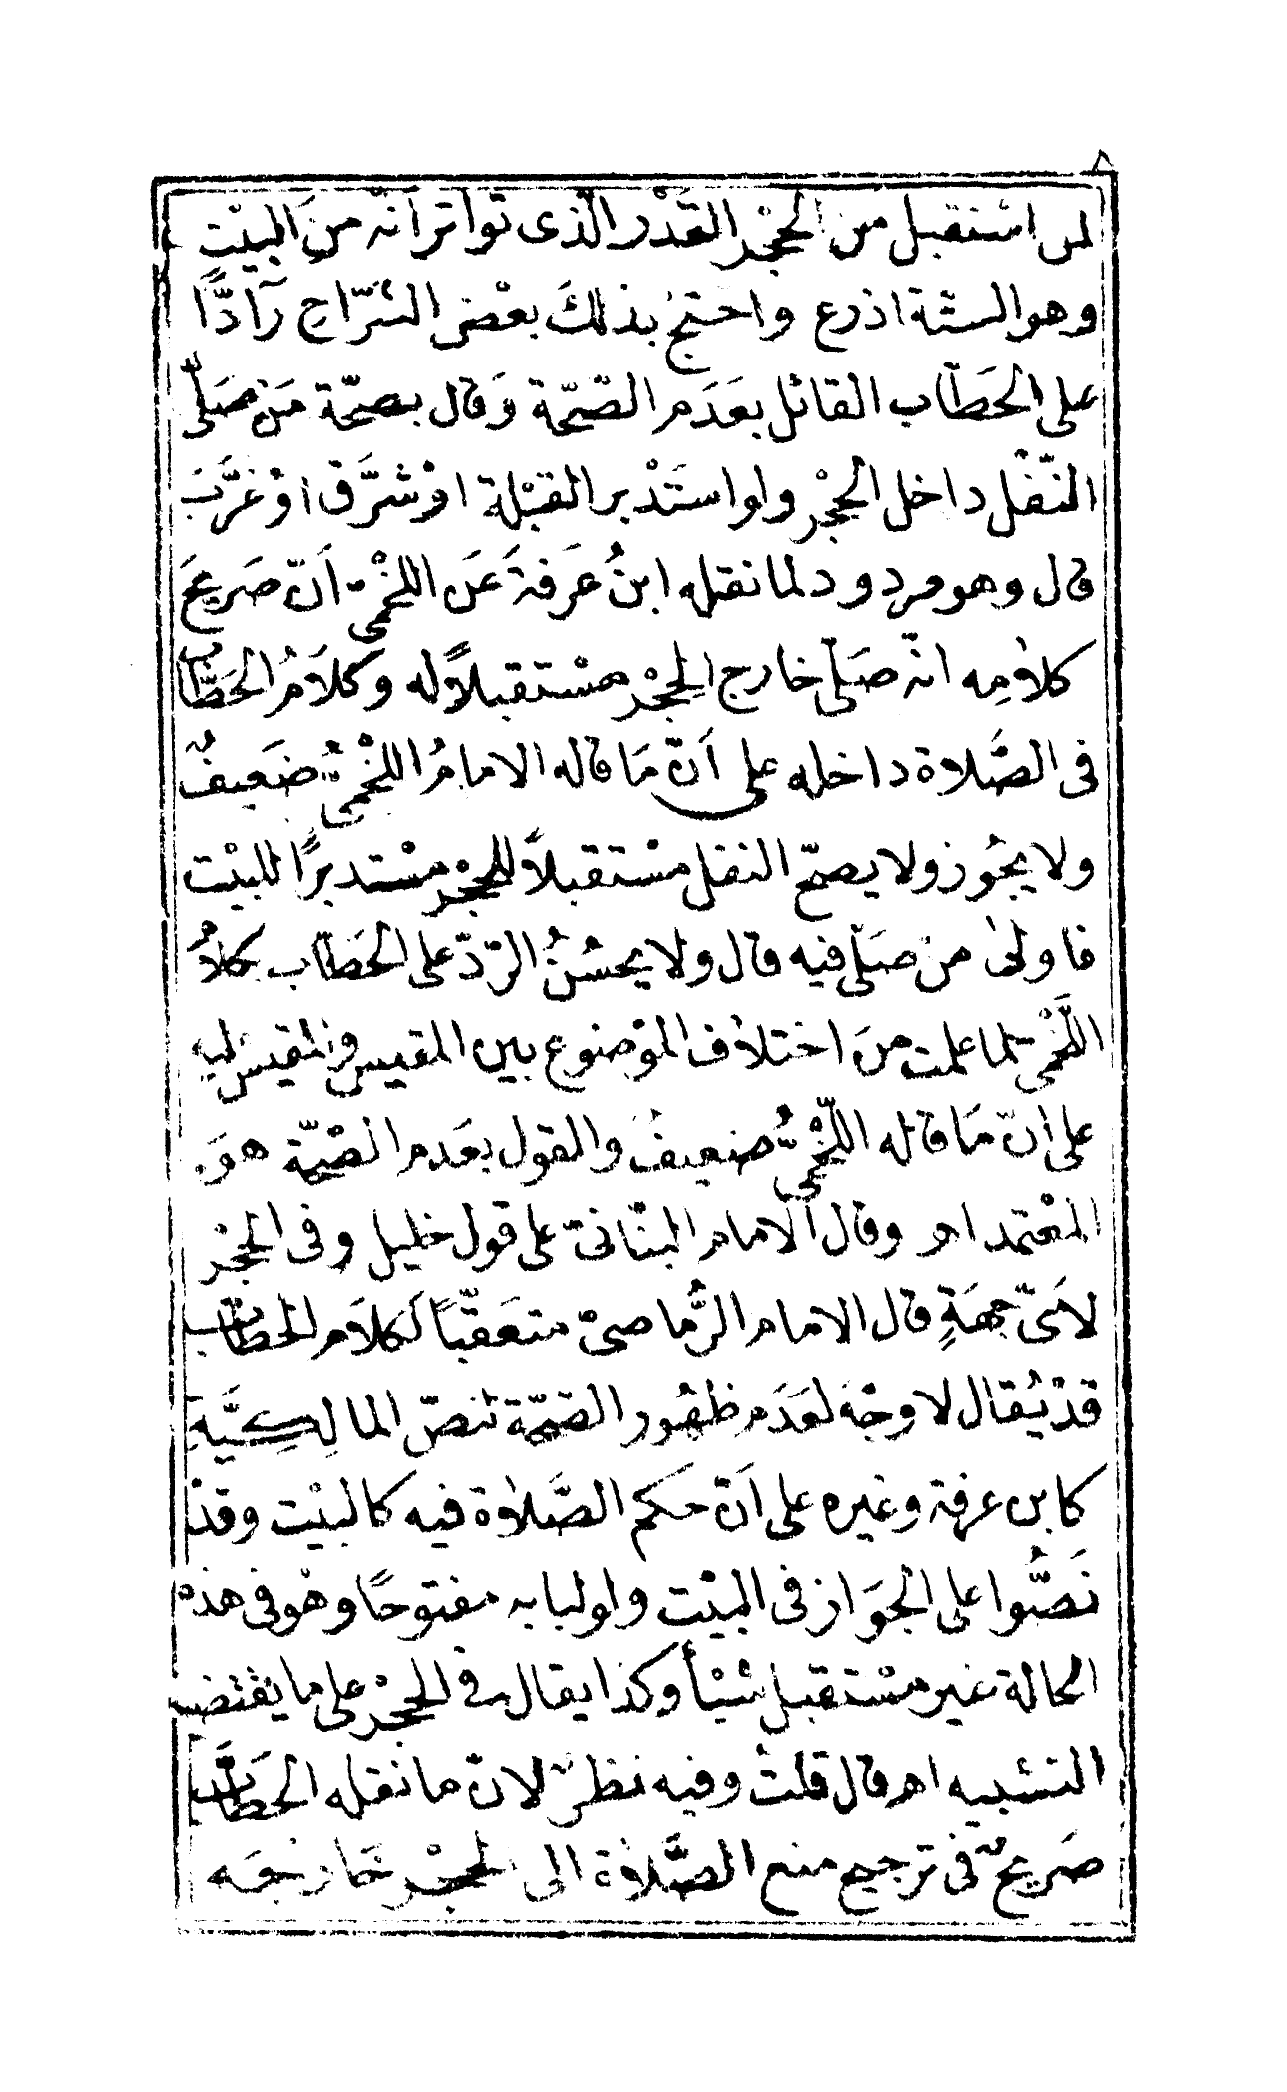 ٨
لمن اسْتقبل من الحِجْر القَدْر الّذى تواتر أنّه منَ البيْت
وهو الستّة اذرع واحتجّ بذلكَ بعْض الشرّاح رآدًّا
على الحَطّاب القائل بعَدَم الصّحّة وَقال بصحّة مَنْ صَلّى
النّفْل داخل الحِجْر ولو استَدْبر القبْلة اوْ شرَّق اوْ غرَّبَ
قال وهو مردود لما نقله ابنُ عَرفةَ عَن اللخْمىّ أنّ صَريحَ
كلامِه انّه صَلّى خارج الحِجْر مسْتقبلاً له وكلاَمُ الحَطّاب
فى الصَّلاة داخله على أنّ مَا قاله الامامُ اللخْمىُّ ضَعيفٌ
ولا يجُوز ولا يصحّ النفل مسْتقبلاً للحِجْر مسْتدبرًا للبيْت
فاولىٰ منْ صَلّى فيه قال ولا يحسُنُ الرّدّ على الحَطّاب بكلامُ
اللَّخْمى لما علمت منَ اختلاف الموْضوع بين المقيس والمقيس عليه
على انّ مَا قاله اللّخْمىُّ ضعيفٌ والقول بعَدم الصّحّة هوَ
المعْتمد اهـ وقال الامام البنّانىّ على قول خليل وفى الحِجْر
لاَىّ جهَةٍ قال الامام الرَّماصىْ متعَقّبًا لكلاَم الحَطّاب
قدْ يُقال لا وجْهَ لعَدَم ظهُور الصّحّة لنصّ المالِكيَّةِ
كابن عرفة وغيره على أنّ حكم الصَّلاة فيه كالبيْت وقدْ
نَصُّوا على الجَوَاز فى البيْت ولو لبابه مفتوحًا وهْو فى هذه
الحالة غير مسْتقبل شيْأ وكذا يقال فى الحِجْر على ما يقْتضيه
التشبيه اهـ قال قلتُ وفيه نظرٌ لانّ ما نقله الحَطّاب
صَريحٌ فى ترجيح منع الصَّلاة الى الحِجْر خَارجَه